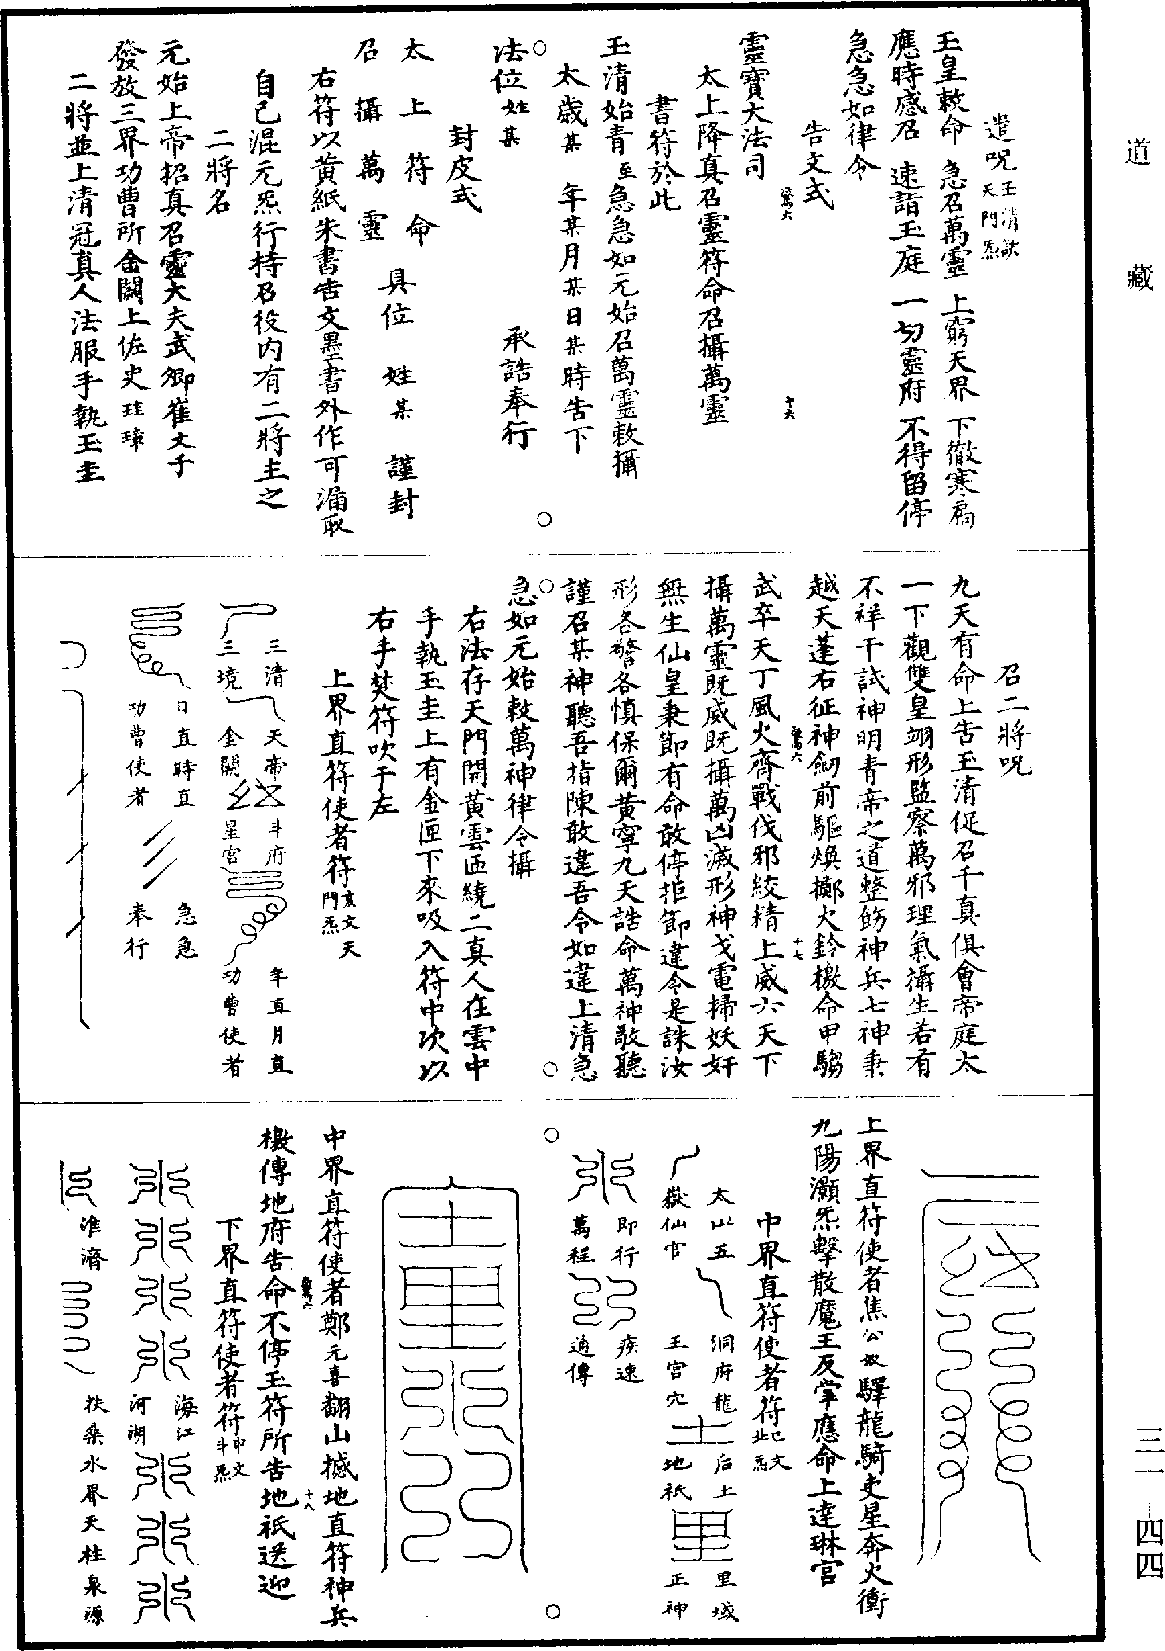 道藏
三一 四四
遣呪玉清訣天門炁
玉皇敕命 急召萬靈 上窮天界 下徹寒扃
應時感召 速詣玉庭 一切靈府 不得留停
急急如律令
告文式
靈寶大法司
太上降真召靈符命召攝萬靈
書符於此
玉清始青至急急如元始召萬靈敕攝
太歲某 年某月某日某時告下
法位姓某 承誥奉行
封皮式
太上符命 具位 姓某 謹封
召攝萬靈
右符以黃紙朱書告文墨書外作可漏取
自己混元炁行持召役內有二將主之
二將名
元始上帝招真召靈大夫武卿崔文子
發放三界功曹所金闕上佐史珪璋
二將並上清冠真人法服手執玉圭
召二將呪
九天有命上告玉清促召千真俱會帝庭太
一下觀雙皇翊形監察萬邪理氣攝生若有
不祥干試神明青帝之道整飭神兵七神秉
越天蓬右征神劒前驅煥擲火鈴檄命甲騶
武卒天丁風火齊戰伐邪絞精上威六天下
攝萬靈既威既攝萬凶滅形神戈電掃妖奸
無生仙皇秉節有命敢停拒節違令是誅汝
形各警各慎保爾黃寧九天誥命萬神敬聽
謹召某神聽吾指陳敢違吾令如違上清急
急如元始敕萬神律令攝
右法存天門開黃雲匝繞二真人在雲中
手執玉圭上有金匣下來吸入符中次以
右手焚符吹于左
上界直符使者符玄文天門炁
三清 天帝 斗府 年直月直
三境 金闕 星宮 功曹使者
日直時直 急急
功曹使者 奉行
上界直符使者焦公奴驛龍騎吏星奔火衝
九陽灝炁擊散魔王反掌應命上達琳宮
中界直符使者符己文北炁
太山五 洞府龍 后土 里域
嶽仙官 王宮穴 地祇 正神
即行 疾速
萬程 通傳
中界直符使者鄭元喜翻山撼地直符神兵
檄傳地府告命不停玉符所告地祇送迎
下界直符使者符中文斗炁
海江
河湖
淮濟 扶桑水界天柱泉源